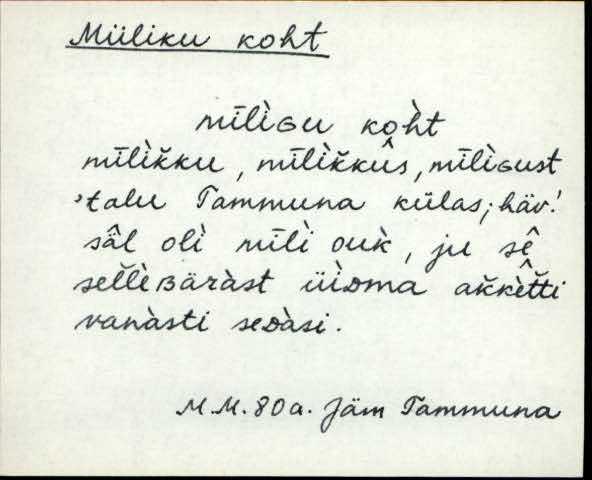 Müliku koht
mīlìGu kòht
mīlìk̆ku, mīlìk̆kûs, mīlìGust
'talu Tammuna külas; häv.'
sâl olì mīlì ouk̀, ju sê
sel̆lèBäràst üìDma ak̆kèt̂ti
vanàsti seDàsi.
M.M. 80 a. Jäm Tammuna